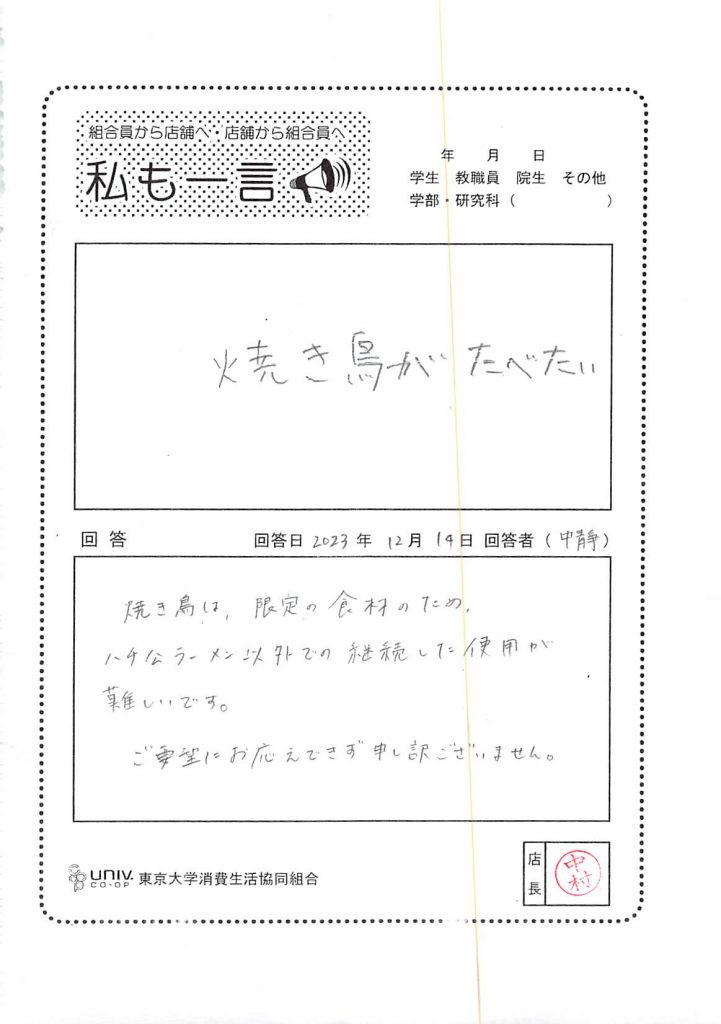 組合員から店舗へ・店舗から組合員へ
私も一言
年 月 日
学生 教職員 院生 その他
学部・研究科( )
焼き鳥がたべたい
回答 回答日 2023年 12月 14日 回答者(中静)
焼き鳥は、限定の食材のため、
ハチ公ラーメン以外での継続した使用が
難しいです。
ご要望にお応えできず申し訳ございません。
UNIV.
CO-OP
東京大学消費生活協同組合
店長
中村